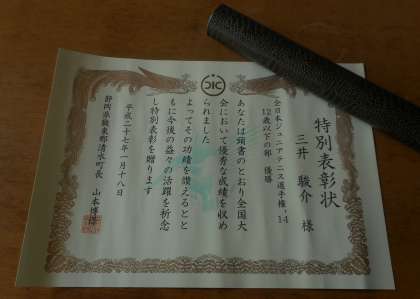 特別表彰状
三井 駿介 様
全日本ジュニアテニス選手権'14
12歳以下の部 優勝
あなたは頭書のとおり全国大
会において優秀な成績を収め
られました
よってその功績を讃えるとと
もに今後の益々の活躍を祈念
し特別表彰を贈ります
平成二十七年一月十八日
静岡県駿東郡清水町長 山本博保